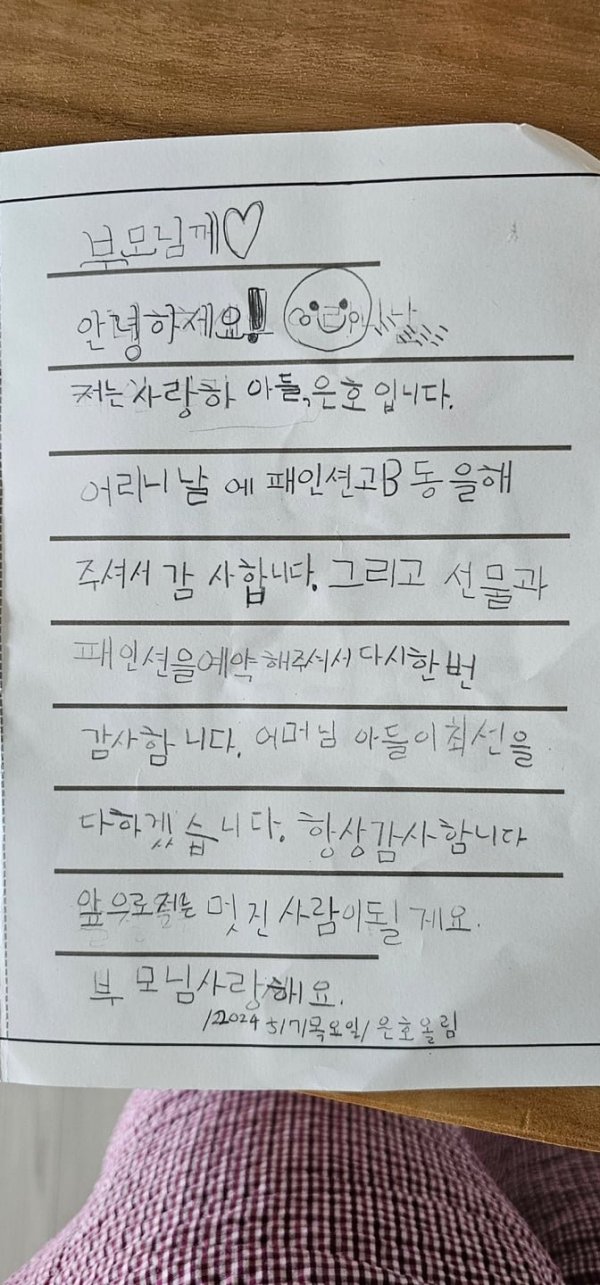 부모님께♡
안녕하세요!
저는 사랑하 아들, 은호 입니다.
어리니날 에 패인션고B동을해
주셔서 감 사합니다. 그리고 선물과
패인션을예약해주셔서 다시한번
감사함 니다. 어머님 아들이최선을
다하겠습니다. 항상감사함니다
앞으로저는 멋진 사람이될 게요.
부 모님사랑해요.
/2024 5/7/목요일/ 은호올림